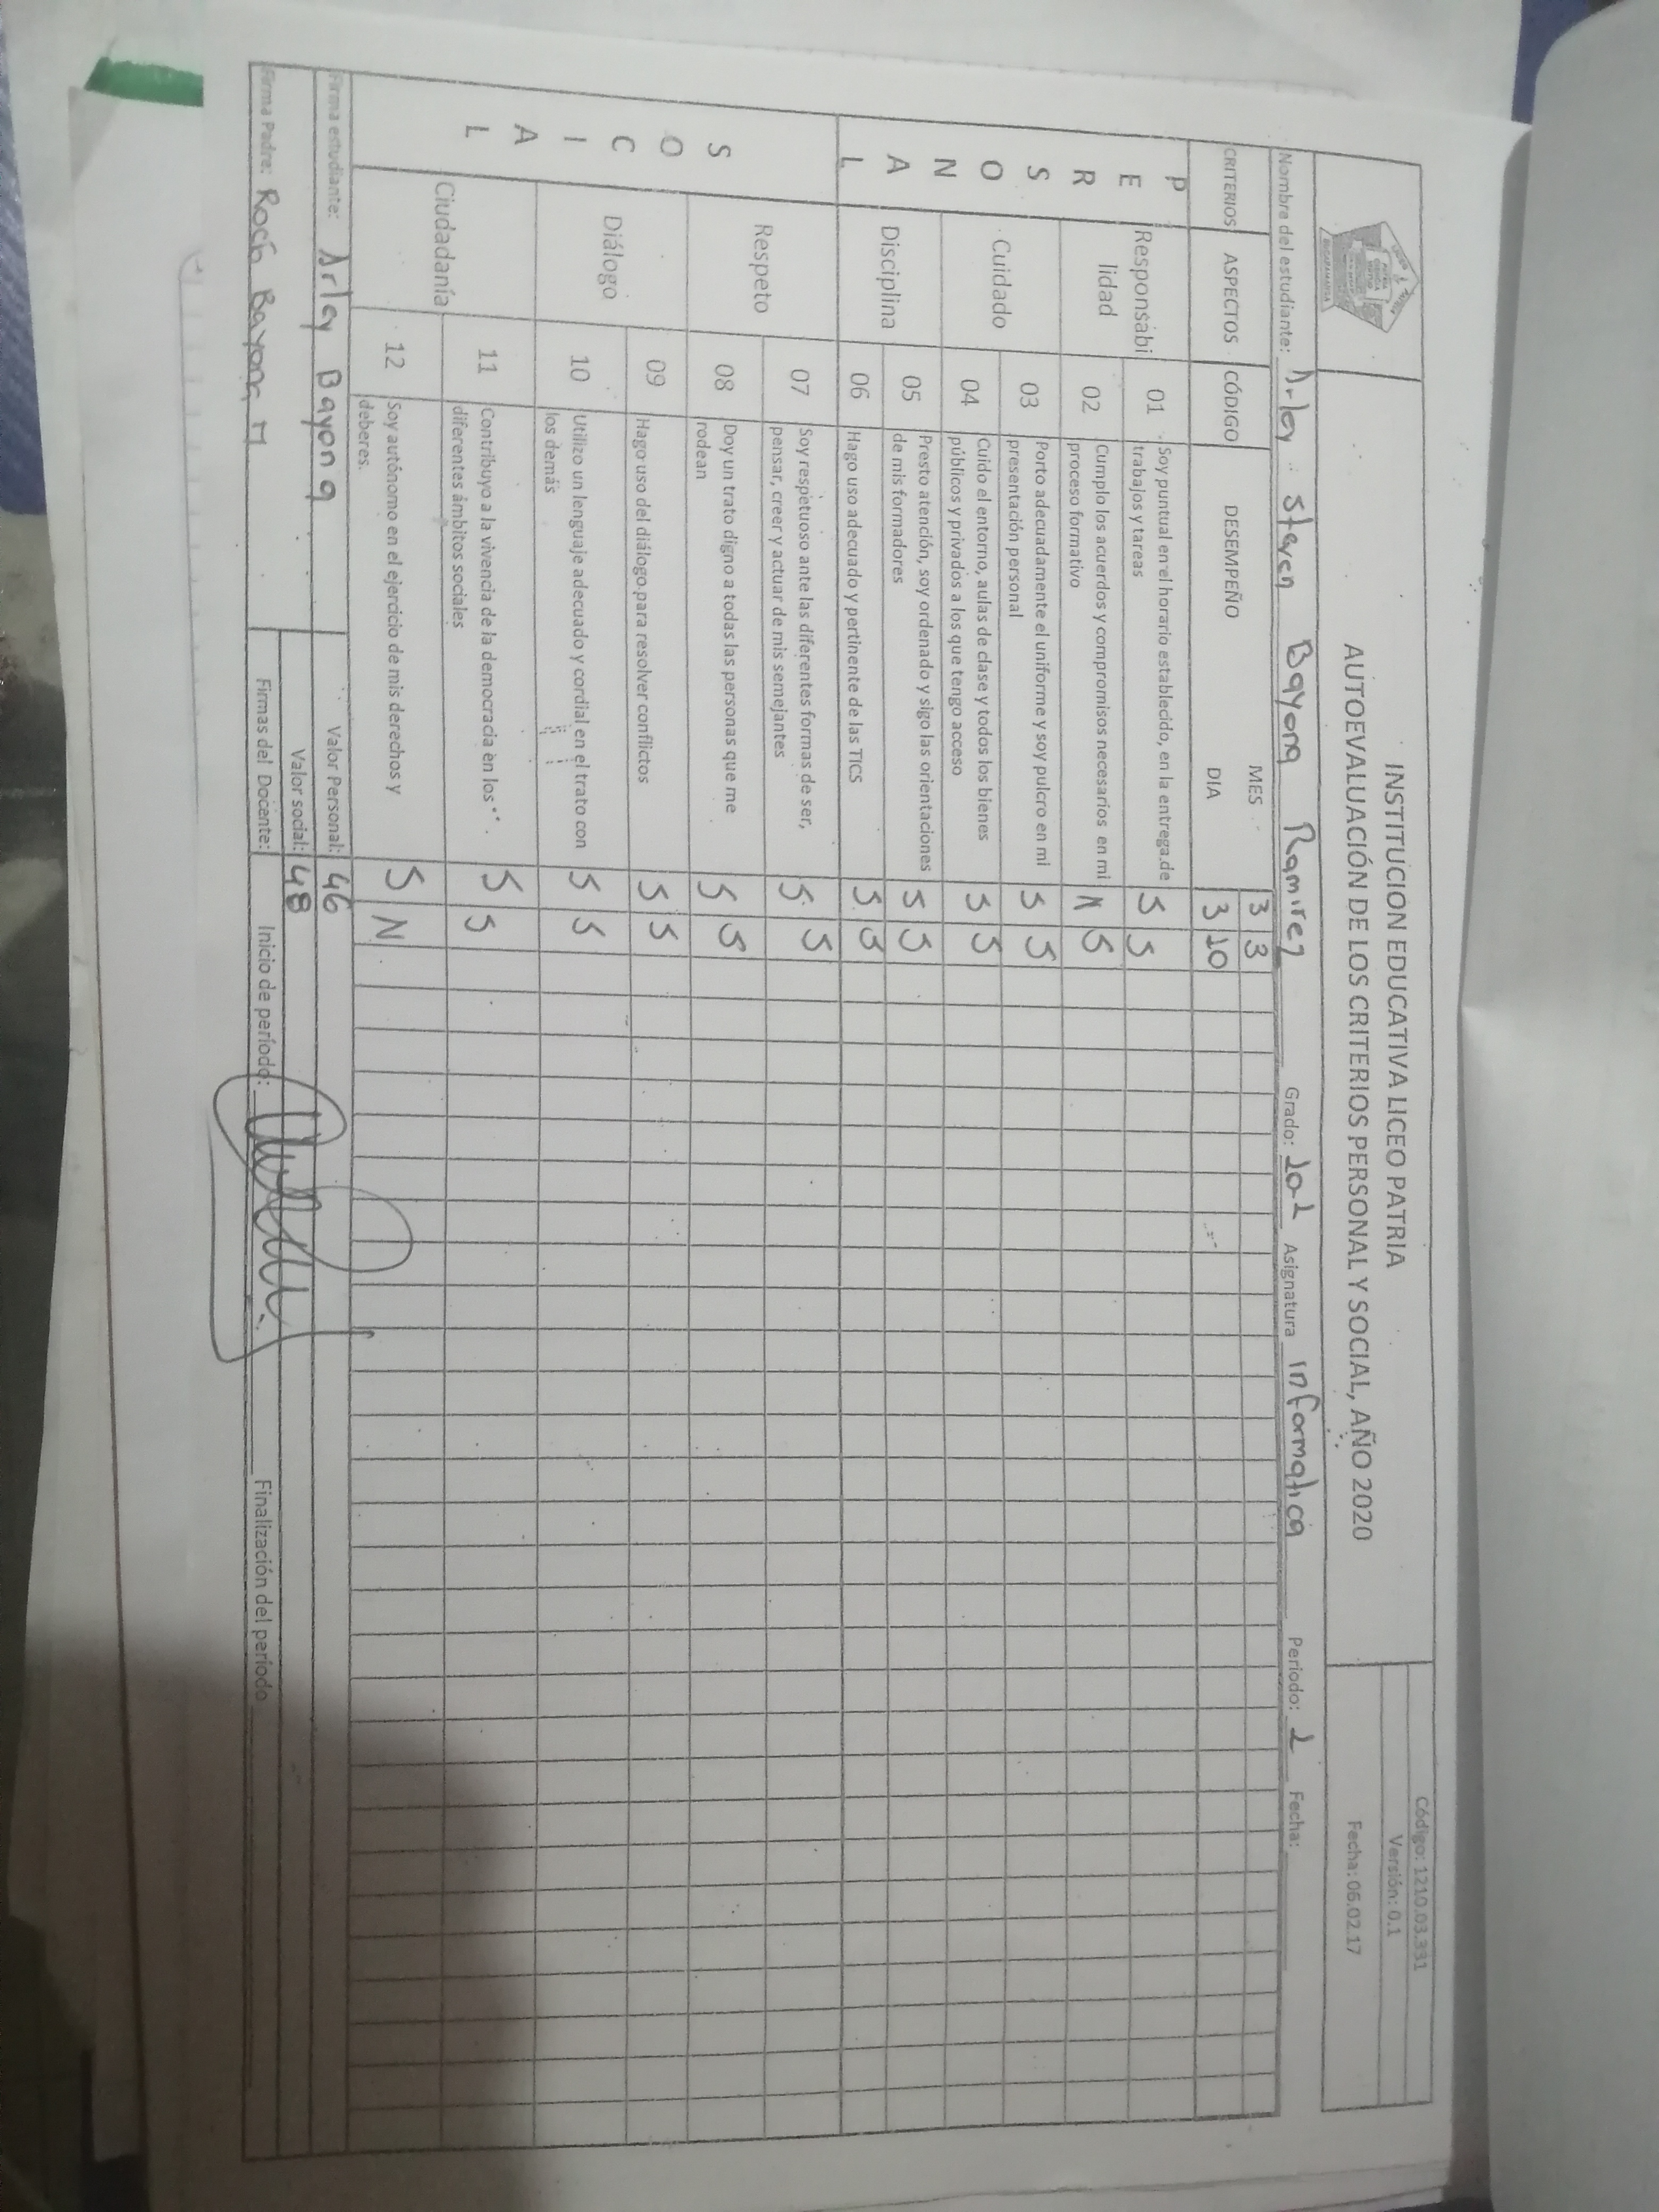 INSTITUCION EDUCATIVA LICEO PATRIA
AUTOEVALUACIÓN DE LOS CRITERIOS PERSONAL Y SOCIAL, AÑO 2020
Código: 1210.03.331
Versión: 0.1
Fecha: 06.02.17
Nombre del estudiante: Arley Staven Bayona Ramirez Grado: 10-1 Asignatura Informatica Periodo: 1 Fecha:
CRITERIOS ASPECTOS CÓDIGO DESEMPEÑO MES 3 3
DIA 3 10
PERSONAL
Responsabi
lidad
01 Soy puntual en el horario establecido, en la entrega de S S
trabajos y tareas
02 Cumplo los acuerdos y compromisos necesarios en mi N S
proceso formativo
Cuidado
03 Porto adecuadamente el uniforme y soy pulcro en mi S S
presentación personal
04 Cuido el entorno, aulas de clase y todos los bienes S S
públicos y privados a los que tengo acceso
Disciplina
05 Presto atención, soy ordenado y sigo las orientaciones S S
de mis formadores
06 Hago uso adecuado y pertinente de las TICS S S
SOCIAL
Respeto
07 Soy respetuoso ante las diferentes formas de ser, S S
pensar, creer y actuar de mis semejantes
08 Doy un trato digno a todas las personas que me S S
rodean
Diálogo
09 Hago uso del diálogo para resolver conflictos S S
10 Utilizo un lenguaje adecuado y cordial en el trato con S S
los demás
Ciudadanía
11 Contribuyo a la vivencia de la democracia en los S S
diferentes ámbitos sociales
12 Soy autónomo en el ejercicio de mis derechos y S N
deberes.
Firma estudiante: Arley Bayona Valor Personal: 46
Valor social: 48
Firma Padre: Bayona Firmas del Docente: Inicio de período: Finalización del período